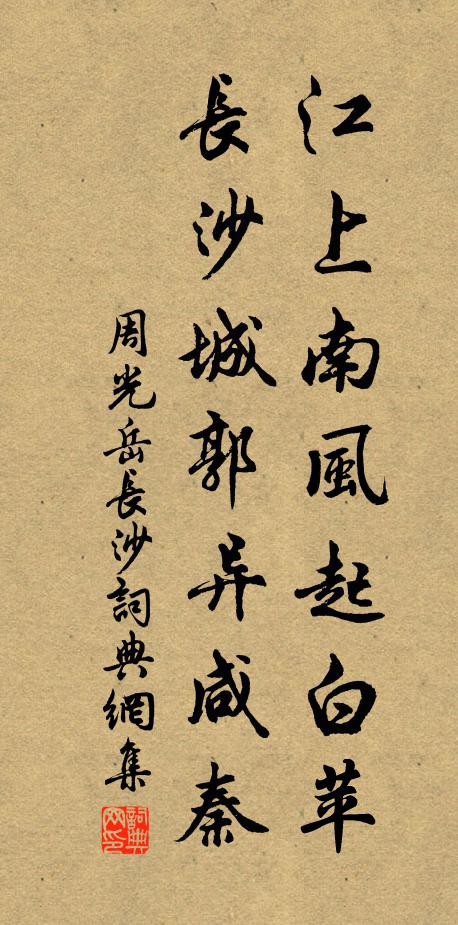 江上南風起白苹
長沙城郭异咸秦
周光岳長沙詞典網集
詞典網印